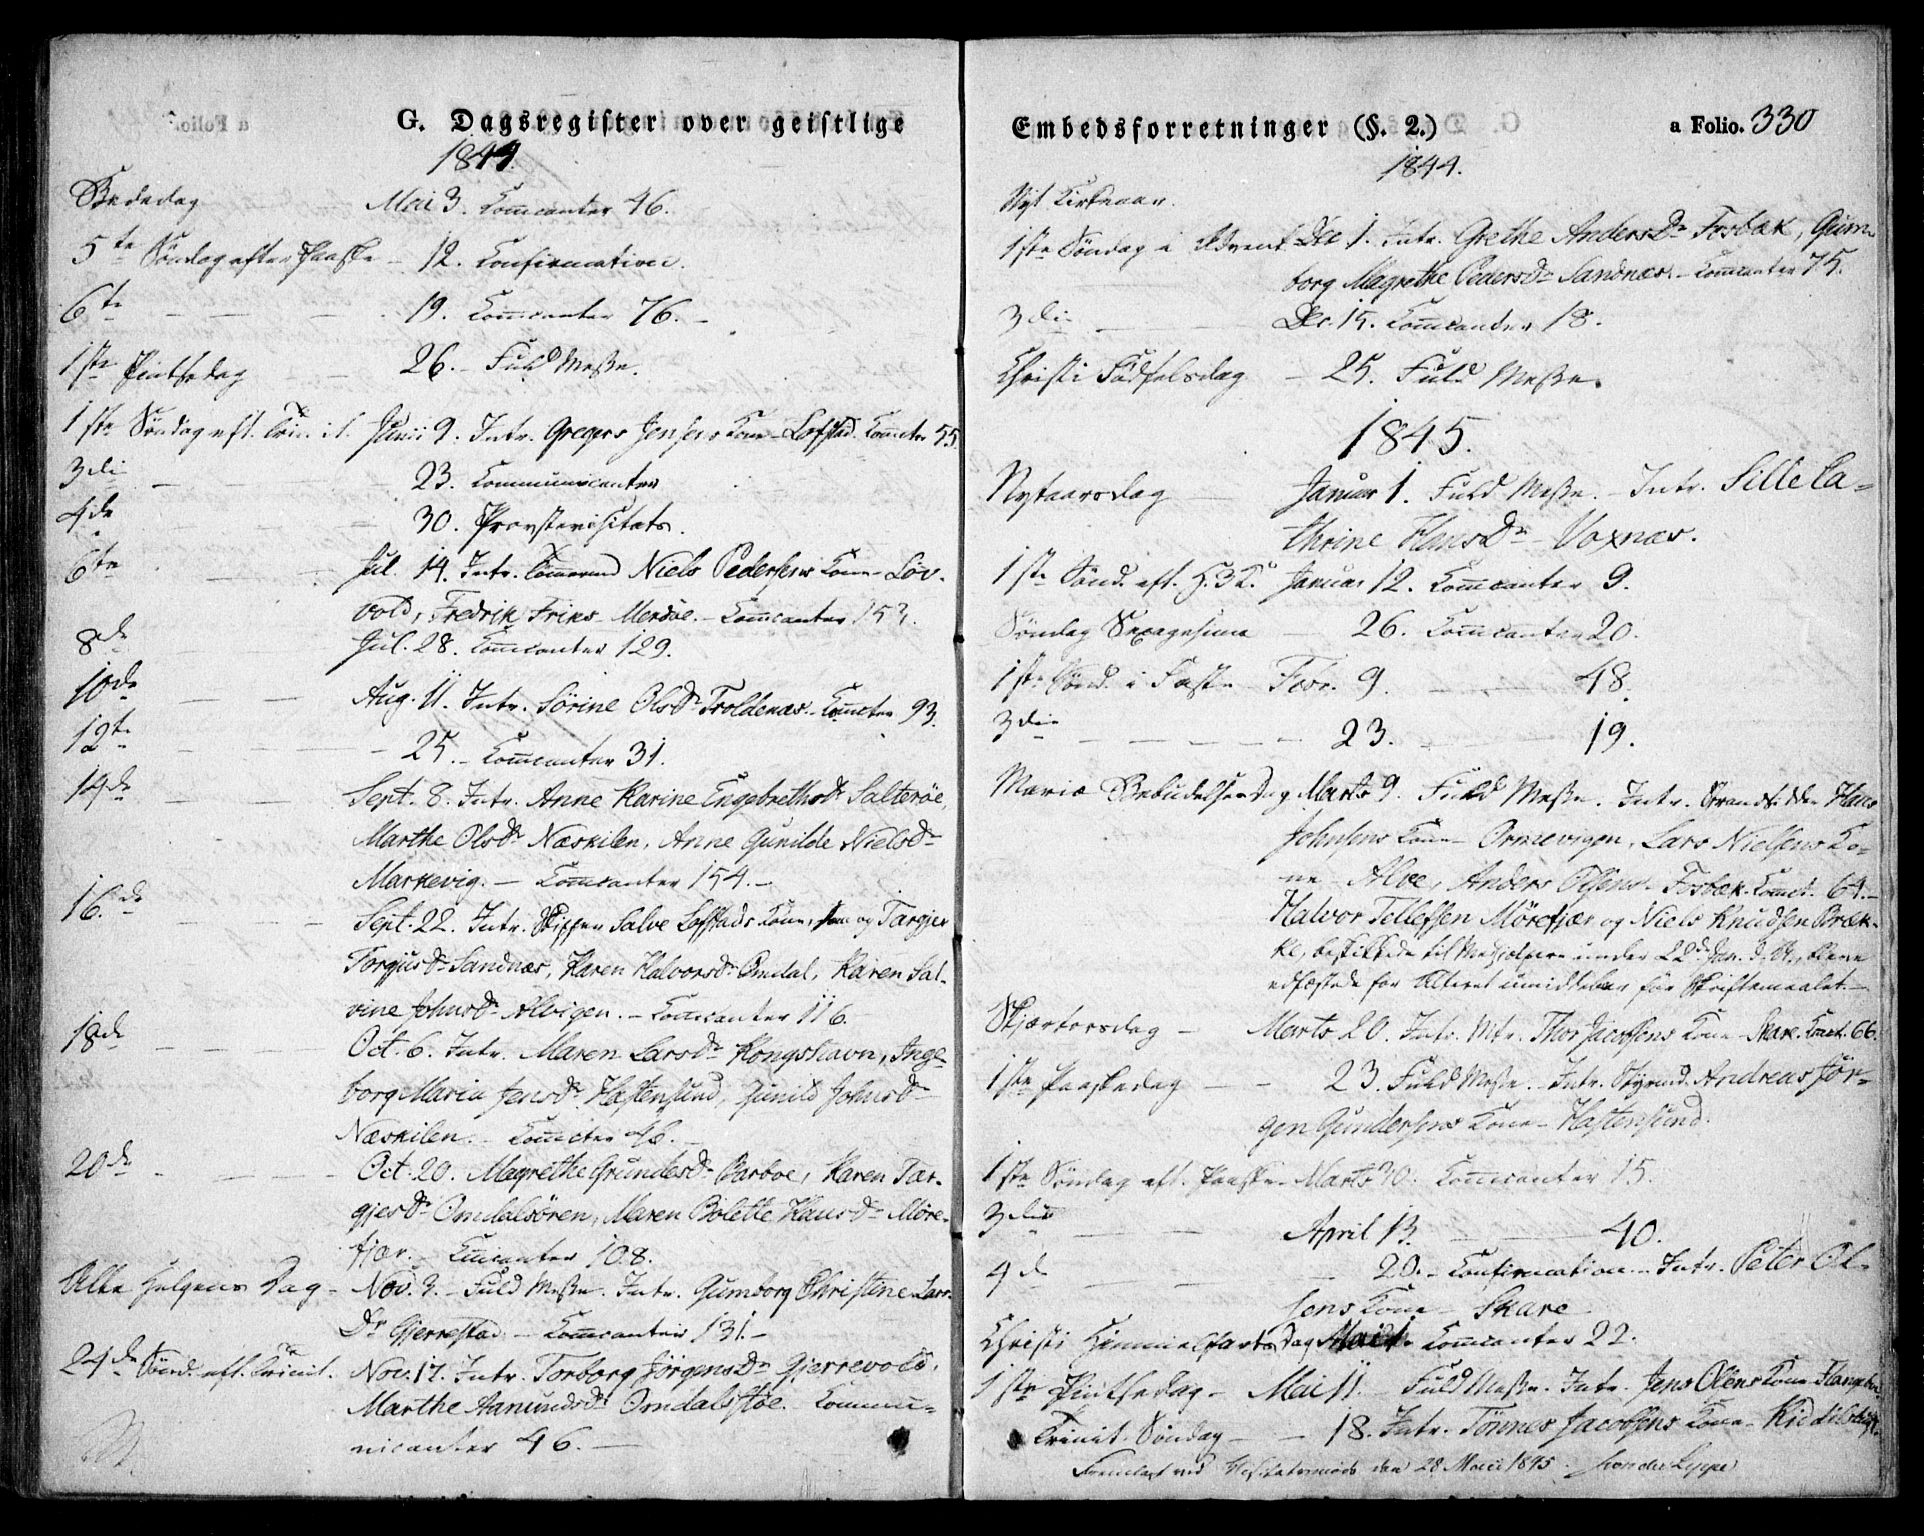 G. Dagsregister over geistlige
1844.
Bededag Mai 3. Com̄canter 46.
5te Søndag efter Paaske - 12. Confirmation.
6te - - - 19. Com̄canter 76. -
1ste Pintsedag - - 26. - Fuld Messe.
1ste Søndag eft. Trinit. Junii 9. Intr. Gregers Jensens Kone - Lofstad. Com̄cter 55.
3die - 23. Communicanter
4de 30. Provstevisitats.
6te Jul. 14. Intr. Niels Pedersens Kone - Löv-
vold, Fredrik Friks Merdöe. - Com̄canter 153.
8de Jul. 28. Com̄canter 129.
10de - - Aug. 11. Intr. Sörine Olsdr Troldenæs. - Com̄cter 93.
12te - - - 25. - Com̄canter 31.
14de - - Sept. 8. Intr. Anne Karine Engebrethsdr Salteröe,
Marthe Olsdr Næskilen, Anne Gunilde Nielsdr
Markevig. - Com̄canter 154. -
16.de - - Sept. 22. Intr. Skipper Salve Lofstads Kone, og Targjer
Torgjusdr Sandnæs, Karen Halvorsdr Omdal, Karen Sal-
vine Johnsdr Alvigen. - Com̄canter 116.
18de - - Oct. 6. Intr. Maren Larsdr Kongshavn, Inge-
borg Maria Jensdr Hastensund, Gunild Johnsdr
Næskilen. - Com̄cter 46. -
20de - - Oct. 20. Magrethe Grundesdr Barboe, Karen Tar-
gjesdr Omdalsören, Maren Bolette Hansdr Möre-
fjær. - Com̄canter 108.
Alle Helgens Dag - Nov. 3. - Fuld Messe. Intr. Gumborg Christine Lars-
Dr Gjerrestad - Com̄canter 131. -
24de Sönd. eft. Trinit. Nov. 17. Intr. Torborg Jörgensdr Gjerrevold,
Marthe Aanundsdr Omdalstöe. Commu-
nicanter 46. -
Embedsforretninger (§. 2.) a Folio. 330
1844.
Nyt Kirkeaar.
1ste Söndag i Advent Dec 1. Intr. Grethe Andersdr Fosbæk, Gum-
borg Magrethe Pedersdr Sandnæs. - Com̄canter 75.
3die - Dec. 15. Com̄canter 18.
Christi Födselsdag - 25. Fuld Messe.
1845.
Nytaarsdag - Januar 1. Fuld Messe. - Intr. Sille Ca-
thrine Hansdr Voxnæs.
1ste Sönd. eft. H. 3 K. Januar 12. Com̄canter 9.
Söndag Sexagesima - 26. Com̄canter 20.
1ste Sönd. i Faste Febr. 9. - 48.
3die - - - 23. - 19.
Mariæ Bebudelses Dag Marts 9. Fuld Messe. Intr. Strandsidder Hans
Johnsens Kone - Ormevigen, Lars Nielsens Ko-
ne - Alve, Anders Olsens - Fosbæk. Com̄ct. 64. -
Halvor Tellefsen Mörefjær og Niels Knudsen Bræk-
ke, beskikkede til Medhjelpere under 22de blev
edfæstede for Alteret umiddelbar før Skriftemaalet. -
Skjærtorsdag - Marts 20. Intr. Mtr. Thor Jacobsens Kone - Skare. Com̄ct. 66.
1ste Paaskedag - - 23. Fuld Messe. Intr. Styrmd. Andreas Jör-
gen Gundersens Kone - Hastensund.
1ste Söndag eft. Paaske - Marts 30. Com̄canter 15.
3die - April 13. - 40.
4de - 20. - Confirmation. - Intr. Peter Ol-
sens Kone - Skare
Christi Himmelfarts Dag Mai 1. Com̄canter 22.
1ste Pintsedag - Mai 11. - Fuld Messe. Intr. Jens Olsens Kone
Trinit. Söndag - - 18. Intr. Tönnes Jacobsens Kone -
Fremlagt ved Visitatsmøde den 28 Maii 1845.